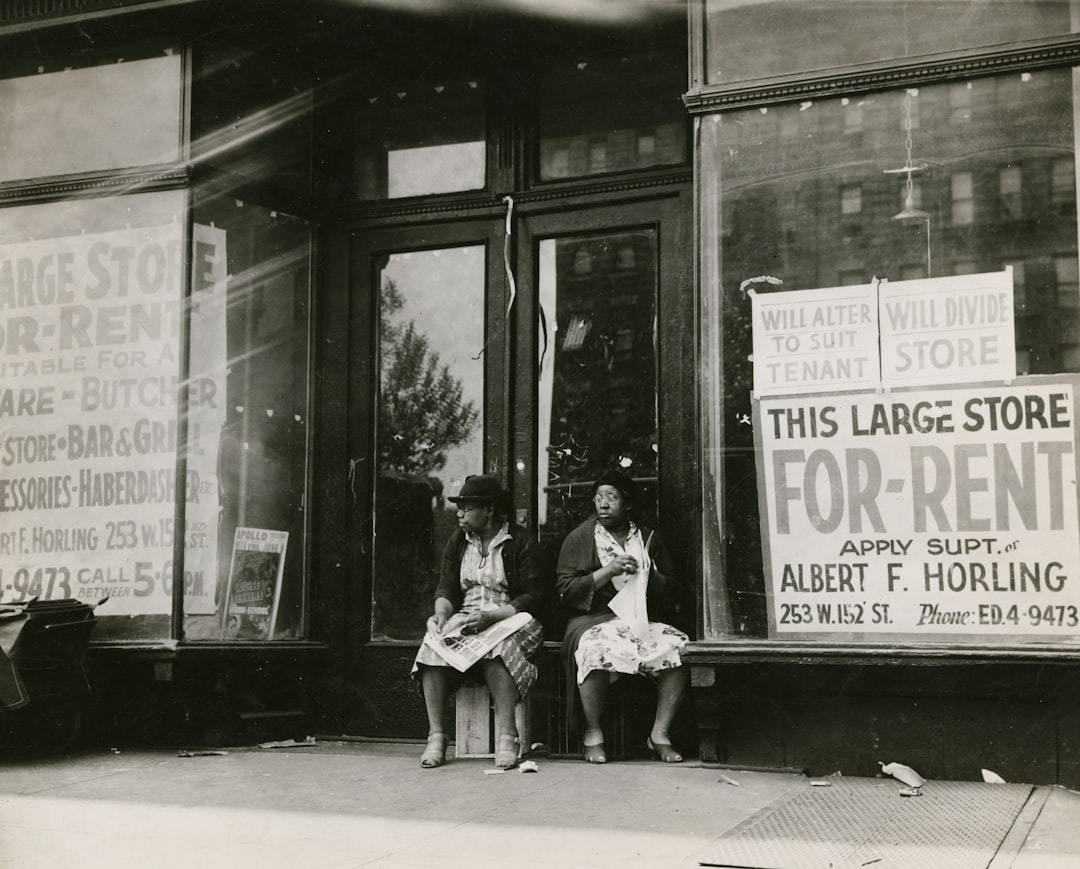 ARGE STORE
OR-RENT
ITABLE FOR A
ARE - BUTCHER
STORE•BAR & GRILL
ESSORIES-HABERDASHER
RT F. HORLING 253 W. 15 ND ST.
-9473 CALL BETWEEN 5-6 P.M.
APOLLO
WILL ALTER
TO SUIT
TENANT
WILL DIVIDE
STORE
THIS LARGE STORE
FOR-RENT
APPLY SUPT. or
ALBERT F. HORLING
253 W. 152' ST. Phone: ED. 4-9473